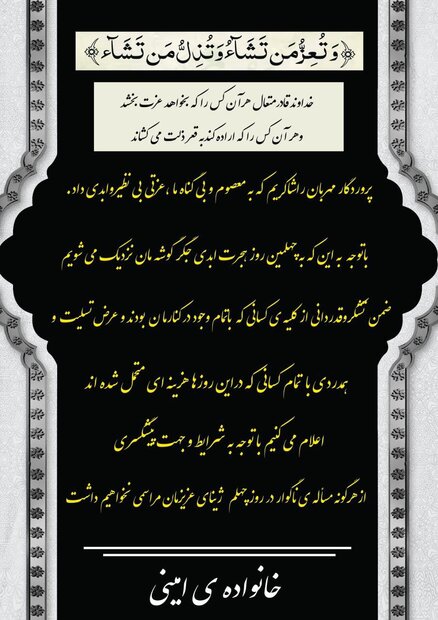 ﴿وَتُعِزُّ مَن تَشَآءُ وَتُذِلُّ مَن تَشَآء﴾
خداوند قادر متعال هر آن کس را که بخواهد عزت بخشد
و هر آن کس را که اراده کند به قعر ذلت می کشاند
پروردگار مهربان را شاکریم که به معصوم و بی گناه ما ، عزتی بی نظیر و ابدی داد .
باتوجه به این که به چهلمین روز هجرت ابدی جگر گوشه مان نزدیک می شویم
ضمن تشکر و قدردانی از کلیه ی کسانی که باتمام وجود در کنارمان بودند و عرض تسلیت و
همدردی با تمام کسانی که در این روزها هزینه ای متحمل شده اند
اعلام می کنیم باتوجه به شرایط و جهت پیشگسری
از هرگونه مسأله ی ناگوار در روز چهلم ژینای عزیزمان مراسمی نخواهیم داشت
خانواده ی امینی